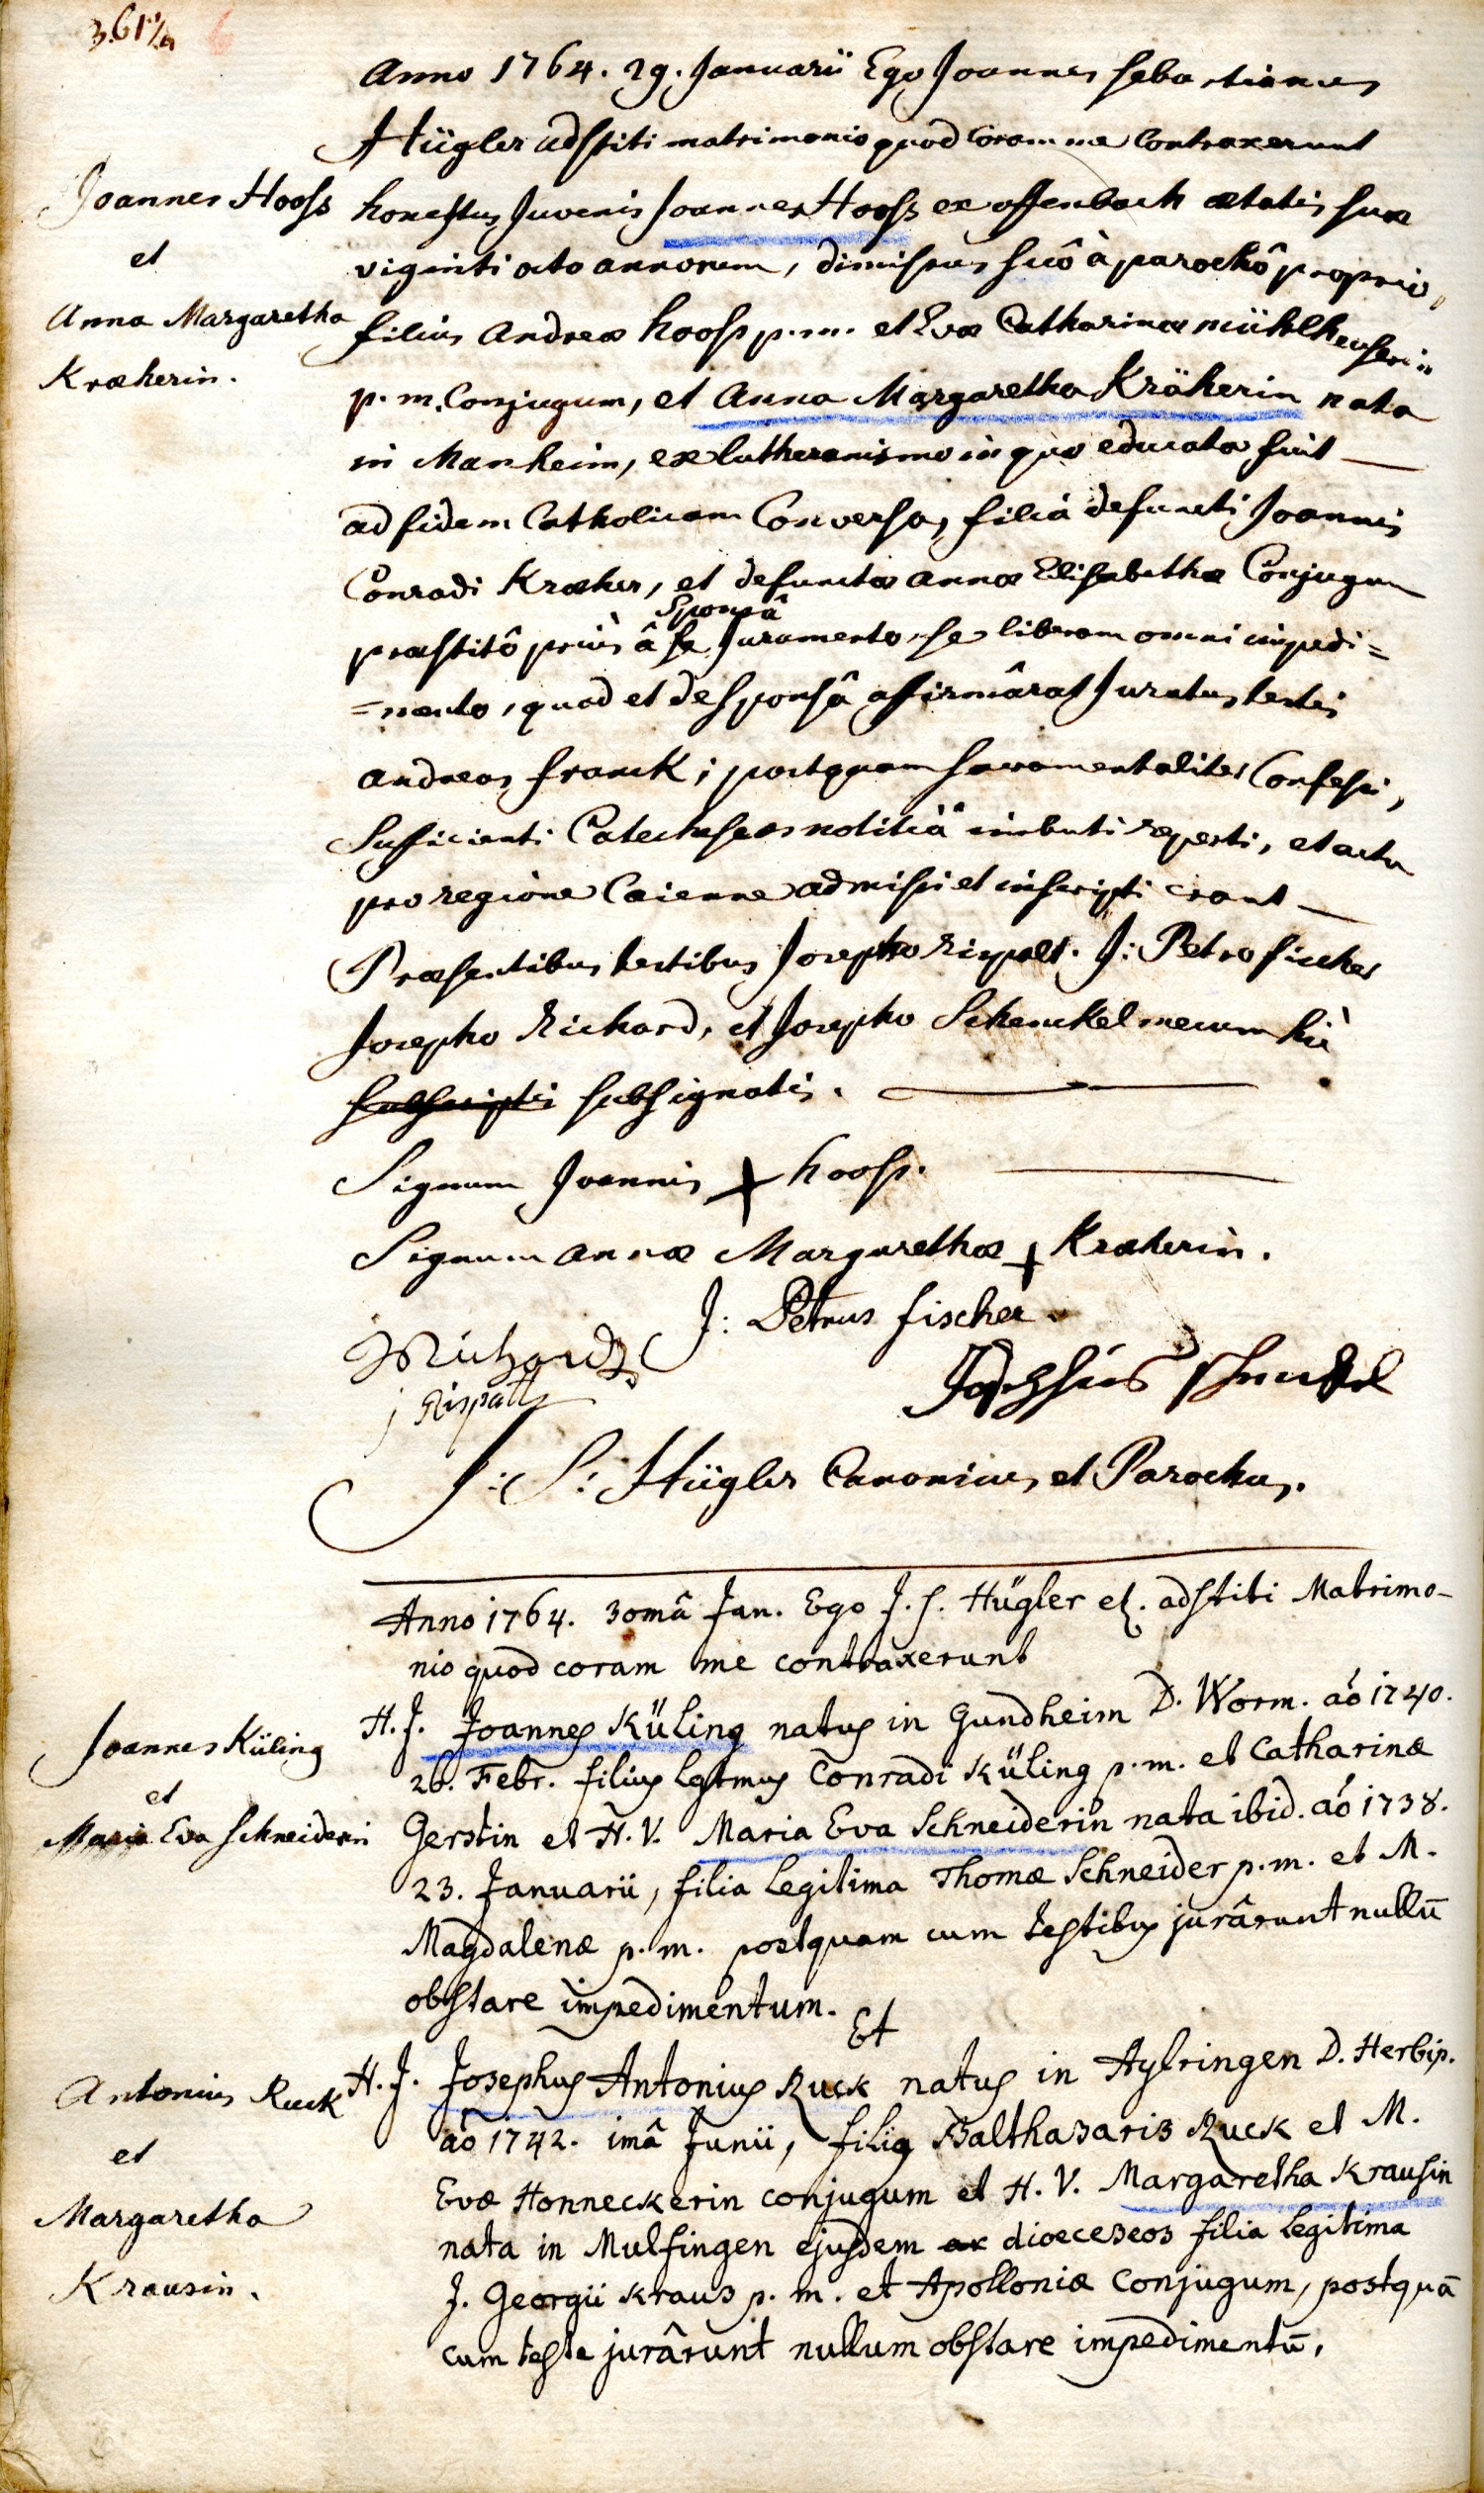 3.61 1/2 6
Anno 1764. 29. Januarii Ego Joannes Sebastianus
Hügler adstiti matrimonio quod coram me Contraxerunt
Joannes Hooss
et
Anna Margaretha
Kræherin.
honestus Juvenis Joannes Hooss ex offenbach ætatis suæ
viginti octo annorum, dimissus suô à parochô proprio,
filius Andreæ hooss p. m. et Evæ Catharinæ mühlheuserin
p. m. Conjugum, et Anna Margaretha Kräherin nata
in Manheim, ex lutheranismo in quo educata fuit —
ad fidem Catholicam Conversa, filia defuncti Joannis
Conradi Kræher, et defunctæ annæ Elisabethæ Conjugum
præstitô prius â se Sponsâ Juramento, se liberam omni impedi=
=mento, quod et de sponsâ affirmârat Juratus testis
andreas franck; postquam sacramentaliter Confessi,
Sufficienti Catecheseos notitiâ imbuti reperti, et actu
pro regione Caienne admissi et inscripti erant —
Præsentibus testibus Josepho Rispalt. J: Petro fischer
Josepho Richard, et Josepho Schenckel mecum hic
subscriptis subsignatis.
Signum Joannis + hooss.
Signum annæ Margarethæ + Kræherin.
J: Petrus fischer.
JRichard
j Rispalt
Josephus schenckel
J: S: Hügler Canonicus et Parochus.
Anno 1764. 30mâ Jan. Ego J. S. Hügler etc. adstiti Matrimo-
nio quod coram me contraxerunt
Joannes Küling
et
Maria Eva Schneiderin
H. J. Joannes Küling natus in Gundheim D. Worm. aô 1740.
26. Febr. filius lgtmus Conradi Küling p. m. et Catharinæ
Gerstin et H. V. Maria Eva Schneiderin nata ibid. aô 1738.
23. Januarii, filia legitima Thomæ Schneider p. m. et M.
Magdalenæ p. m. postquam cum testibus jurârunt nullū
obstare impedimentum.
Et
Antonius Ruck
et
Margaretha
Krausin.
H. J. Josephus Antonius Ruck natus in Aylringen D. Herbip.
aô 1742. imâ Junii, filius Balthasaris Ruck et M.
Evæ Honneckerin conjugum et H. V. Margaretha Krausin
nata in Mulfingen ejusdem ax dioeceseos filia legitima
J. Georgii Kraus p. m. et Apolloniæ Conjugum, postquā
cum teste jurârunt nullum obstare impedimentū,